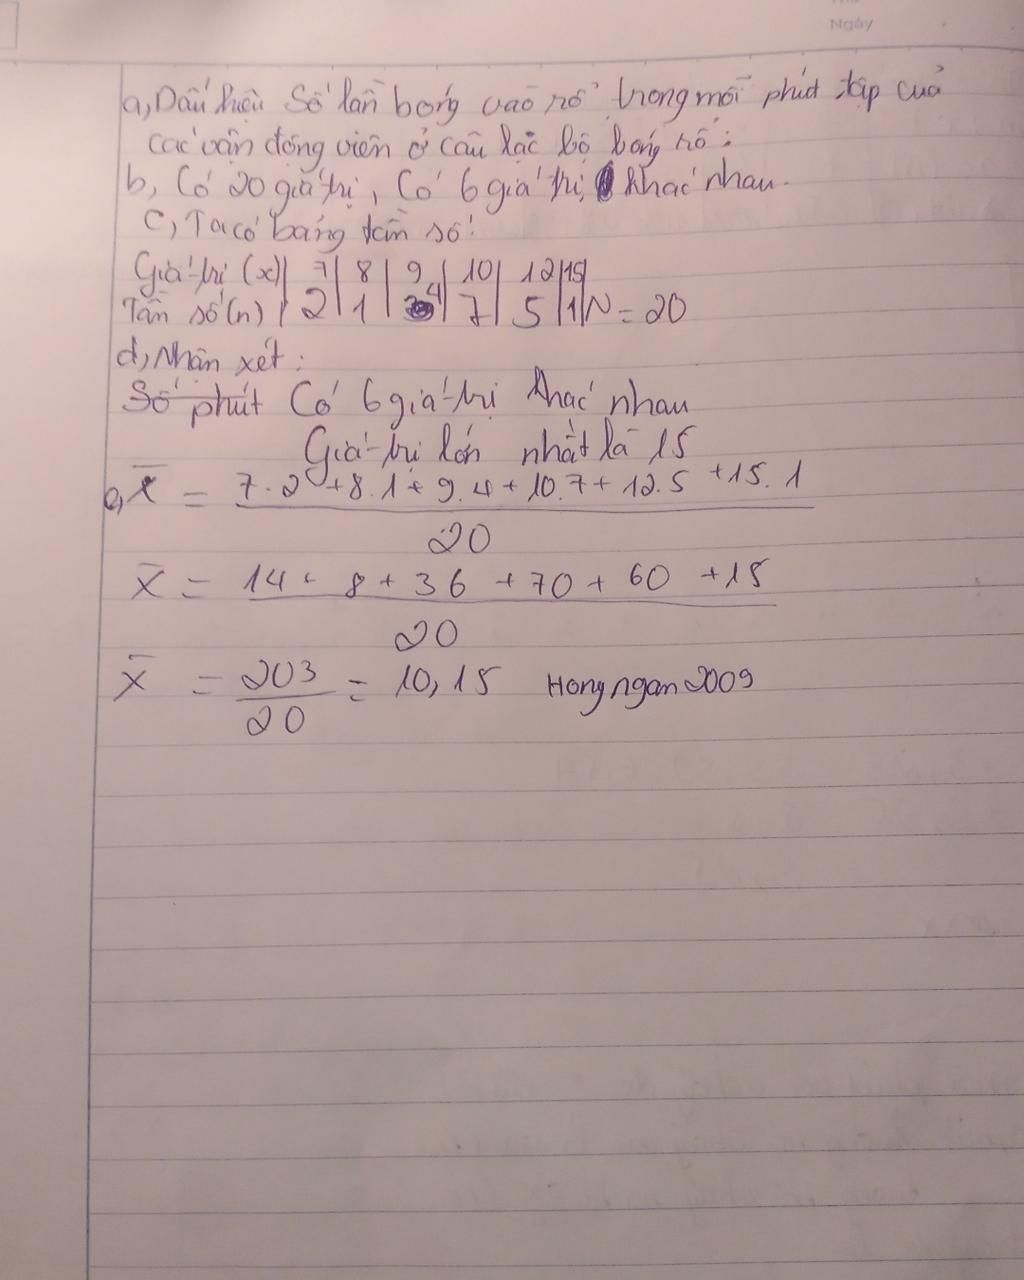 Ngày
a, Dấu hiệu Số lần bóng vào rổ trong mỗi phút tập của
các vận động viên ở câu lạc bộ bóng rổ:
b, Có 20 giá trị, Có 6 giá trị khác nhau.
c, Ta có bảng tần số:
Giá trị (x) | 7 | 8 | 9 | 10 | 12 | 15 |
Tần số (n) | 2 | 1 | 4 | 7 | 5 | 1 | N = 20
d, Nhận xét:
Số phút Có 6 giá trị khác nhau
Giá trị lớn nhất là 15
e, X̄ = 7.2 + 8.1 + 9.4 + 10.7 + 12.5 + 15.1
20
X̄ = 14 + 8 + 36 + 70 + 60 + 15
20
X̄ = 203 = 10,15 Hongngan2009
20